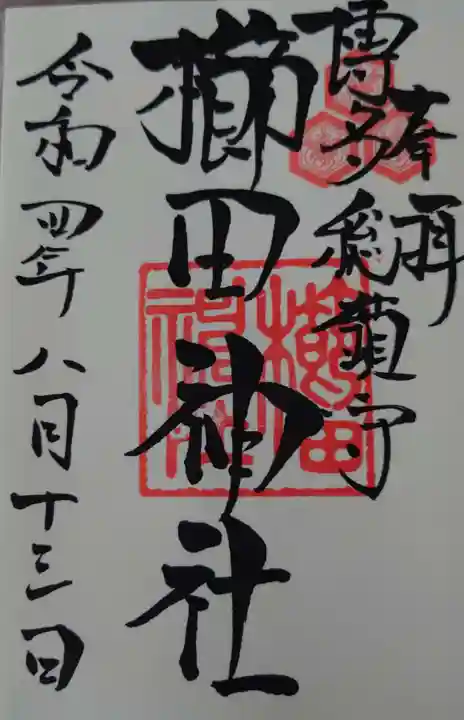 奉拝
博多総鎮守
櫛田神社
令和四年八月十三日
櫛田神社